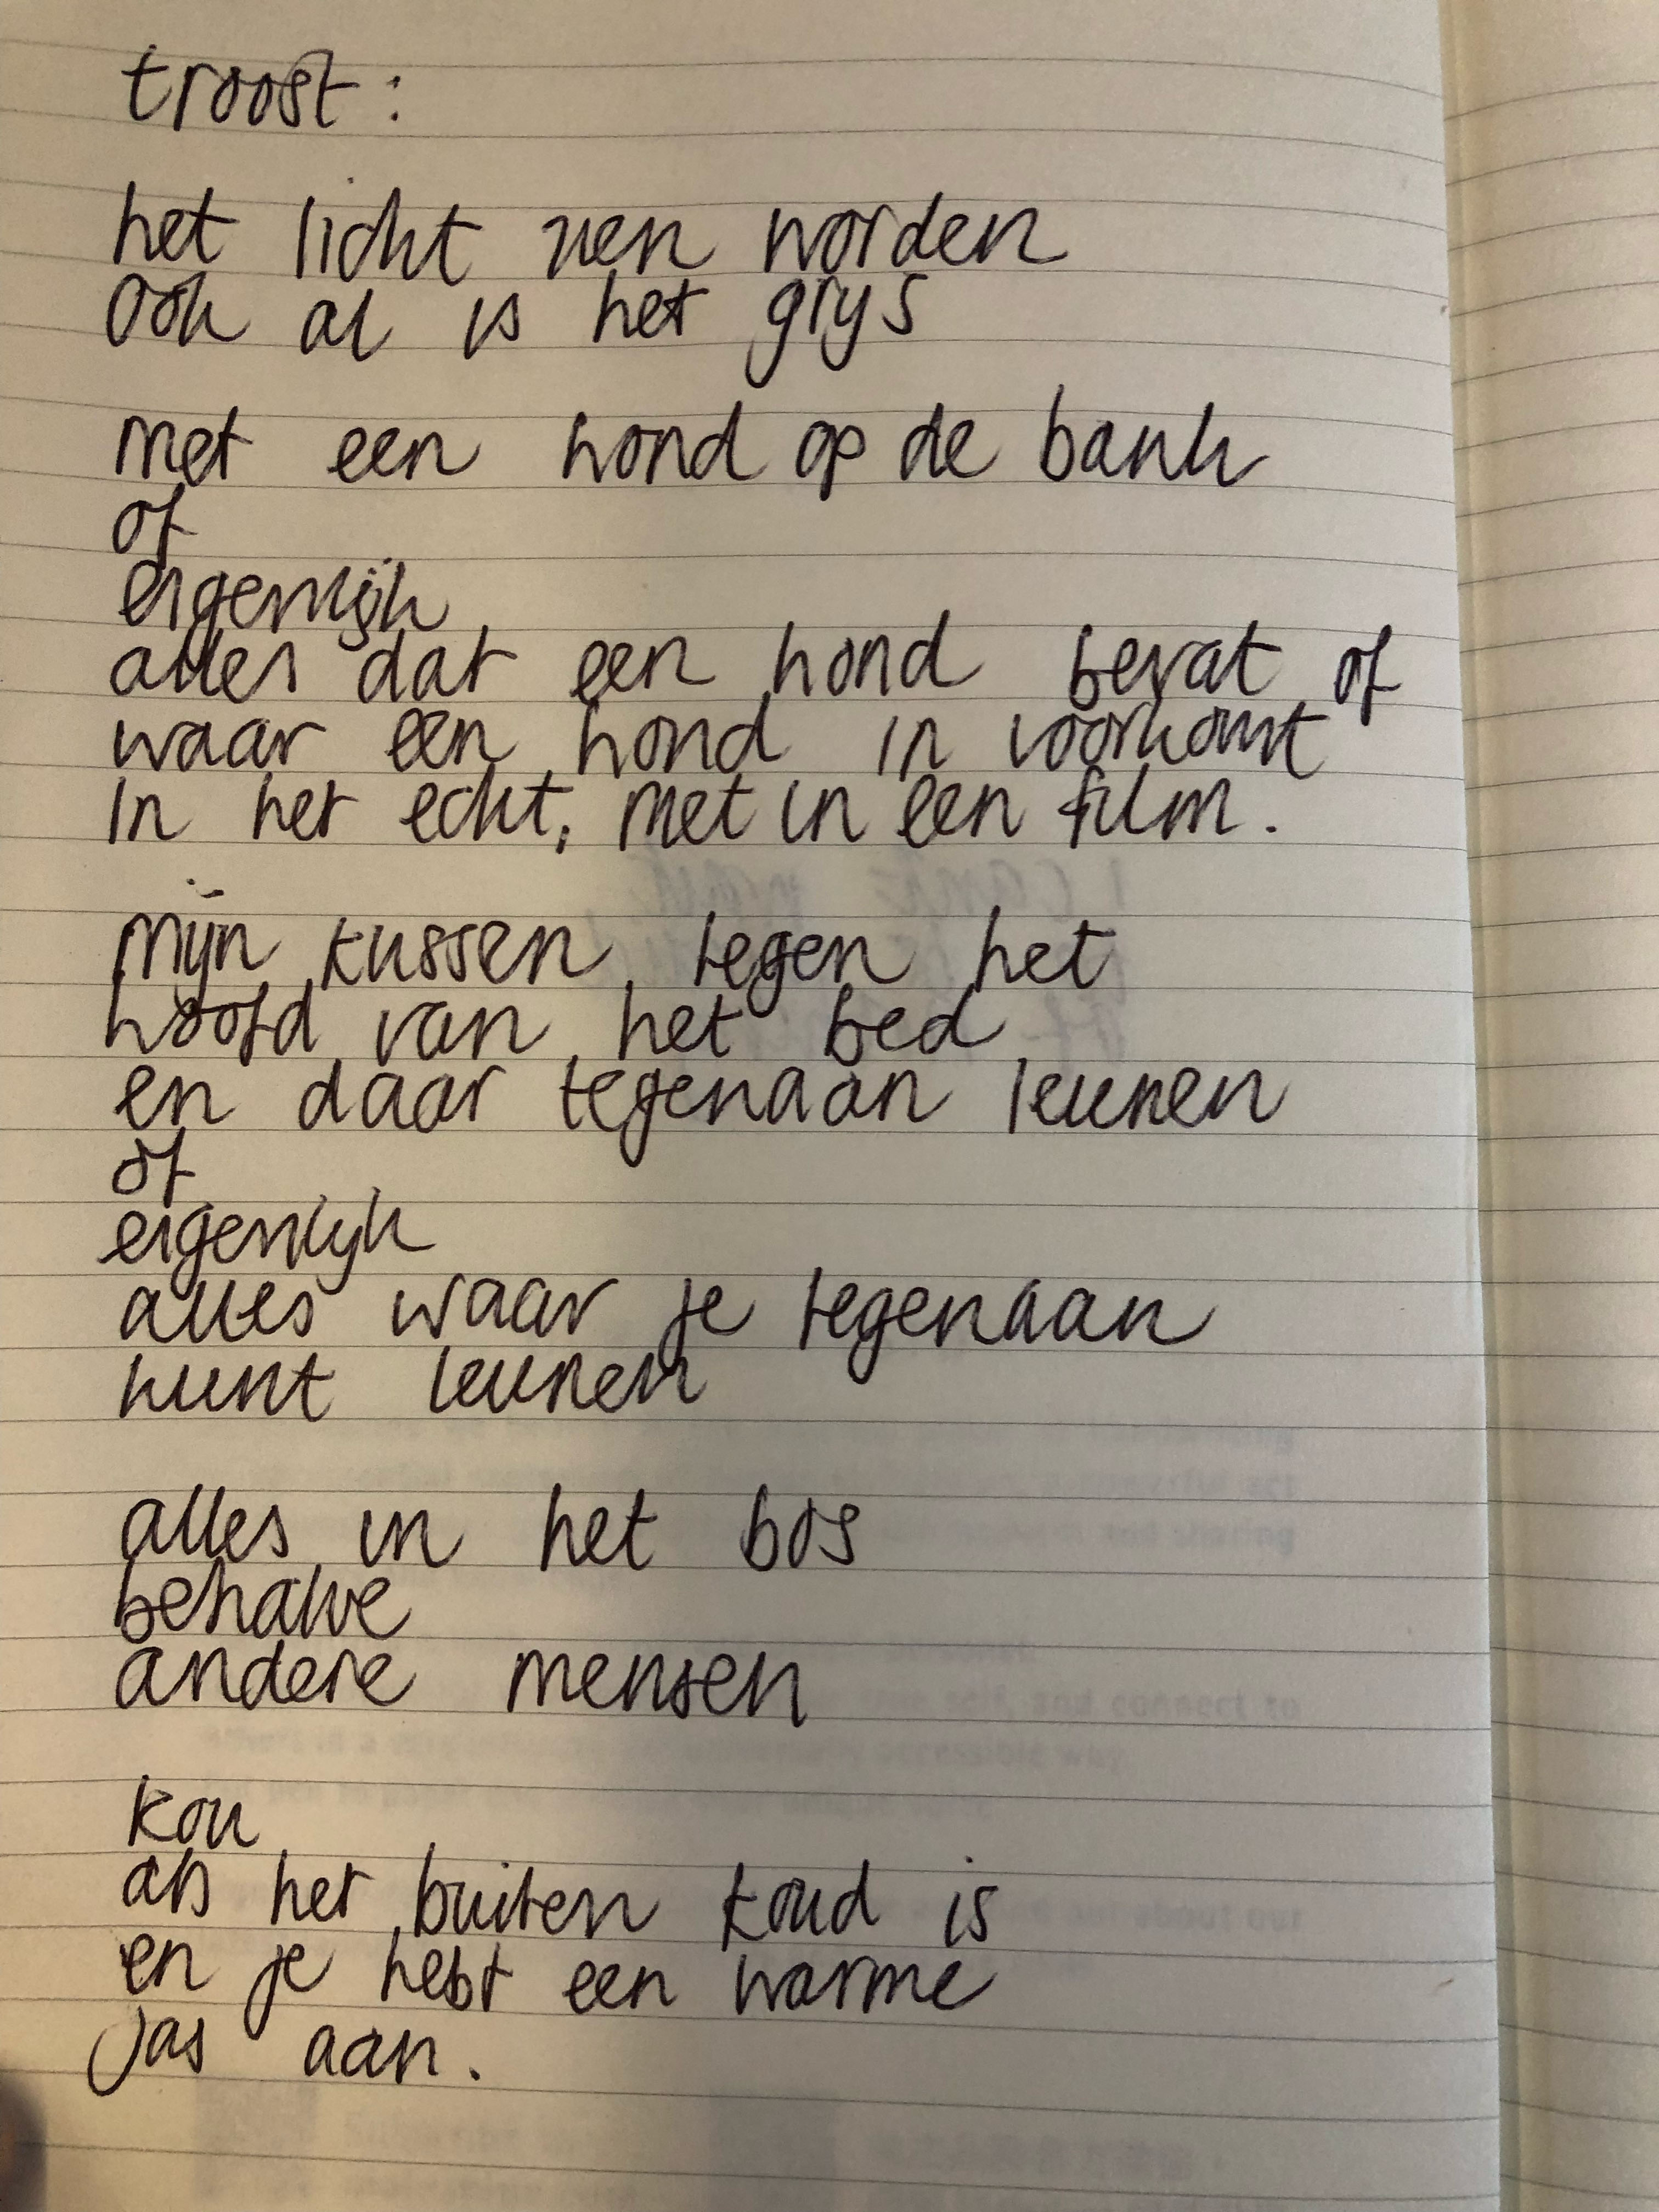 troost:
het licht zien worden
ook al is het grijs
met een hond op de bank
of
eigenlijk
alles dat een hond bevat of
waar een hond in voorkomt
in het echt, niet in een film.
mijn kussen tegen het
hoofd van het bed
en daar tegenaan leunen
of
eigenlijk
alles waar je tegenaan
kunt leunen
alles in het bos
behalve
andere mensen
kou
als het buiten koud is
en je hebt een warme
jas aan.